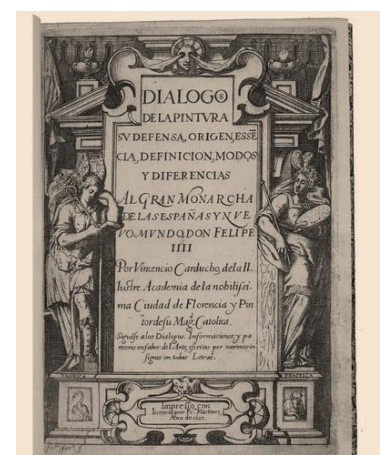 DIALOGOS
DE LA PINTVRA
SV DEFENSA, ORIGEN, ESSẼ
CIA, DEFINICION, MODOS
Y DIFERENCIAS
AL GRAN MONARCHA
DE LAS ESPAÑAS Y NVE
VO MVNDO, DON FELIPE
IIII
Por Vincencio Carducho, de la Il-
lustre Academia de la nobilissi-
ma Ciudad de Florencia, y Pin
tor de su Magd. Catolica.
Siguese a los Dialogos, Informaciones, y pa
receres en fabor del Arte, escritas por varones in
signes en todas Letras.
TEORICA
PRACTICA
Impreso con
licencia por Fr. Martinez